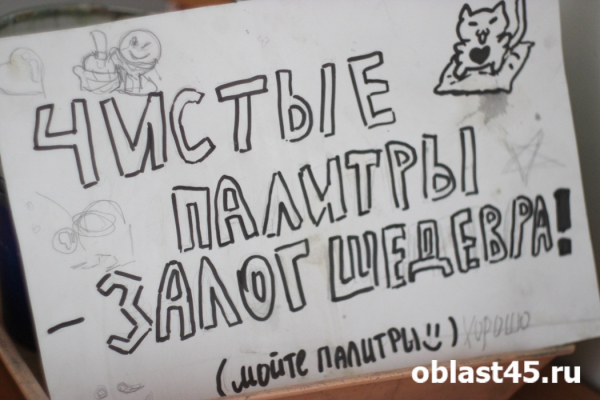 ЧИСТЫЕ
ПАЛИТРЫ
- ЗАЛОГ ШЕДЕВРА!
(МОЙТЕ ПАЛИТРЫ) хорошо
oblast45.ru